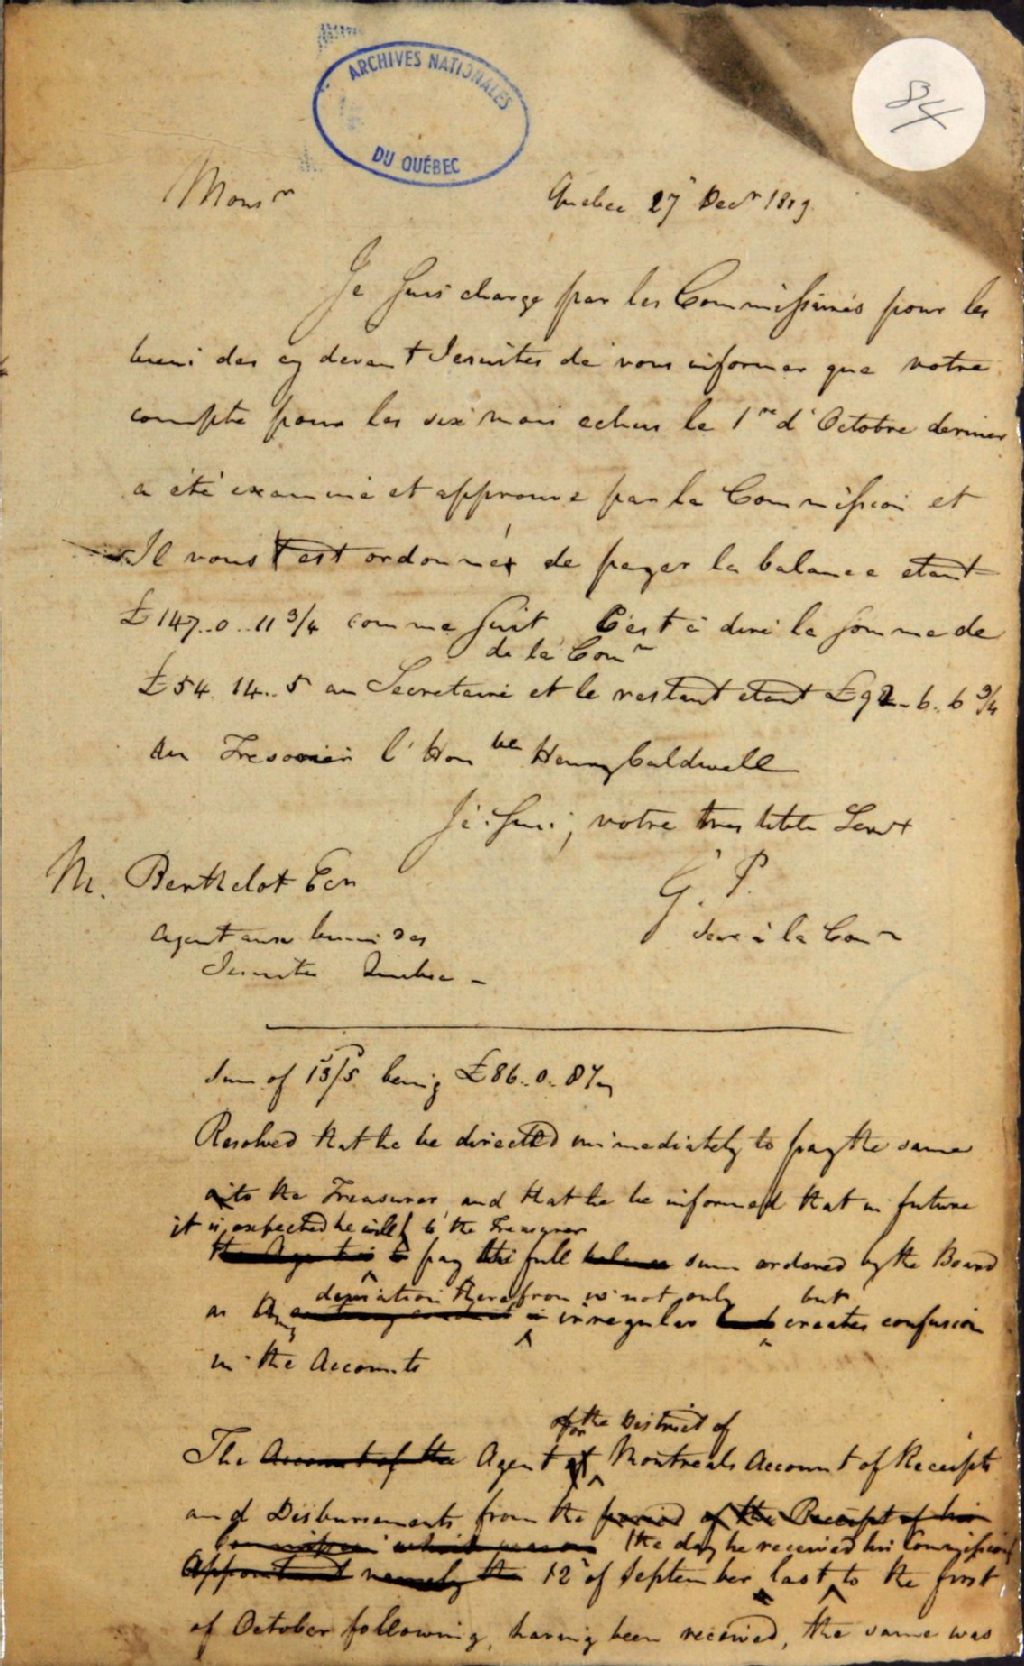 ARCHIVES NATIONALES
DU QUÉBEC
84
Monsr
Quebec 27 Decr 1819
Je suis chargé par les Commissaires pour les
biens des cy devant Jesuites de vous informer que votre
compte pour les six mois echus le 1re d'Octobre dernier
a été examiné et approuvé par la Commission et
Il vous est ordonné de payer la balance etant
£147..0..11 3/4 comme suit C'est à dire la somme de
de la Comn
£54 14..5 au Secretaire et le restant etant £92..6..6 3/4
au Tresorier l'Honble Henry Caldwell
Je suis, votre tres Servt
M. Berthelot Ecr
G. P.
agent aux biens des
Secre à la Comn
Jesuites Quebec -
Sum of being £86..0..
Resolved that he be directed immediately to pay the same
to the Treasurer and that he be informed that in future
it is expected he will to the Treasurer
pay the full balance sum ordered by the Board
deviation therefrom is not only but
as any irregular creates confusion
in the Accounts
for the District of
The Account of the Agent Montreals Account of Receipts
and Disbursements from the period of the Receipt of his
Commission the day he received his Commission
namely the 12 of September last to the first
of October following, having been received, the same was